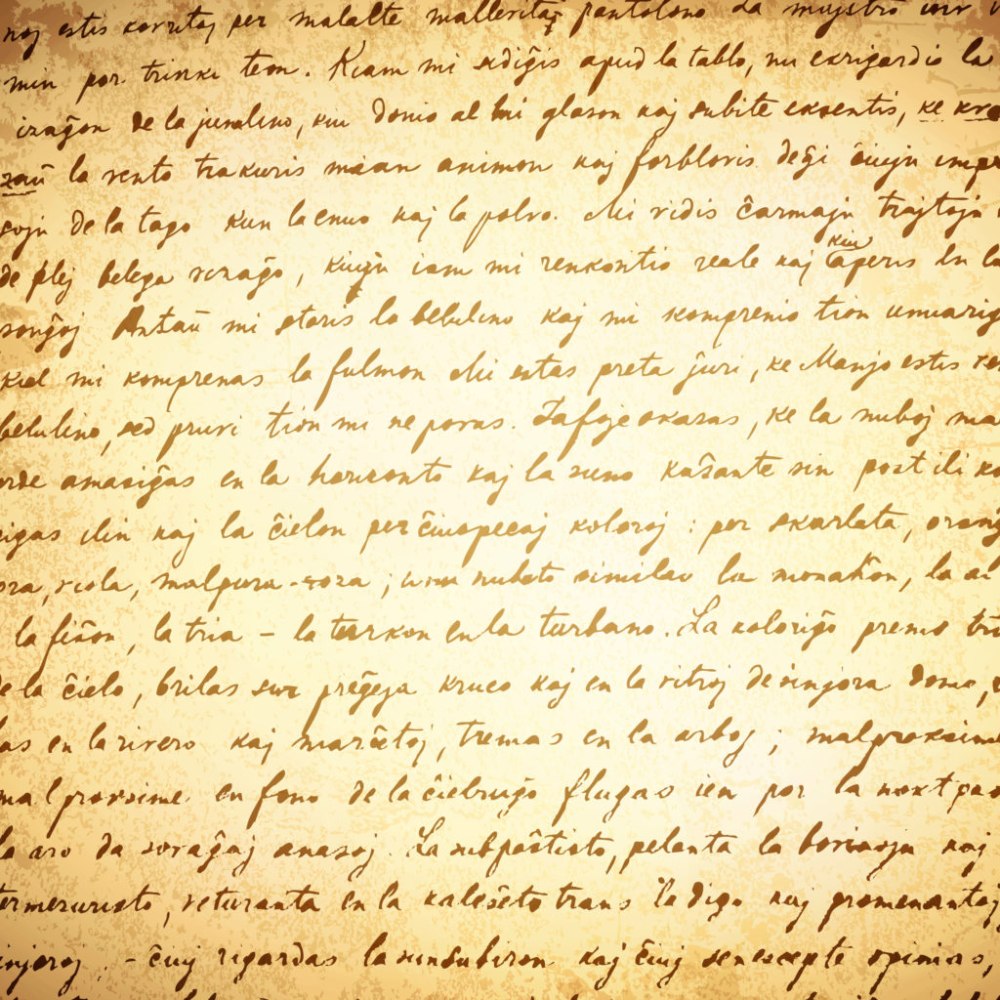 kaj estis kovritaj per malalte pantalono da
min por trinki teon. Kiam mi sidiĝis apud la tablo, mi ekrigardis la
izaĝon de la junulino, kiu donis al mi glason kaj subite eksentis, ke kva
zaŭ la vento trakuris mian animon kaj forblovis deĝi ĉiujn impre
sojn de la tago kun la enuo kaj la polvo. Mi vidis ĉarmajn trajtojn
de plej belega vizaĝo, kiujn iam mi renkontis reale kaj kiu aperis en la
sonĝoj Antaŭ mi staris la belulino kaj mi komprenis tion unuarig
kiel mi komprenas la fulmon Mi estas preta ĵuri, ke Manjo estis ve
belulino, sed pruvi tion mi ne povas. Iafoje okazas, ke la nuboj ma
orde amasiĝas en la horizonto kaj la suno kaŝante sin post ili ko
rigas ilin kaj la ĉielon per ĉiuspecaj koloroj : per skarlata, oranĝ
ora, viola, malpura-roza ; unu nubeto similas la monaĥon, la al
la fiŝon, la tria - la turkon en la turbano. La koloriĝo premis tri
de la ĉielo, brilas sur preĝeja kruco kaj en la vitroj de sinjora domo,
las en la rivero kaj marĉetoj, tremas en la arboj ; malproksime
malproksime en fono de la ĉielruĝo flugas ien por la nokt pas
la aro da sovaĝaj anasoj. La subpaŝtisto, pelanta la bovinojn kaj
termezuristo, veturanta en la kaleŝeto trans la digo kaj promenantaj
injoroj - ĉiuj rigardas la sunsubiron kaj ĉiuj senescepte opinias,